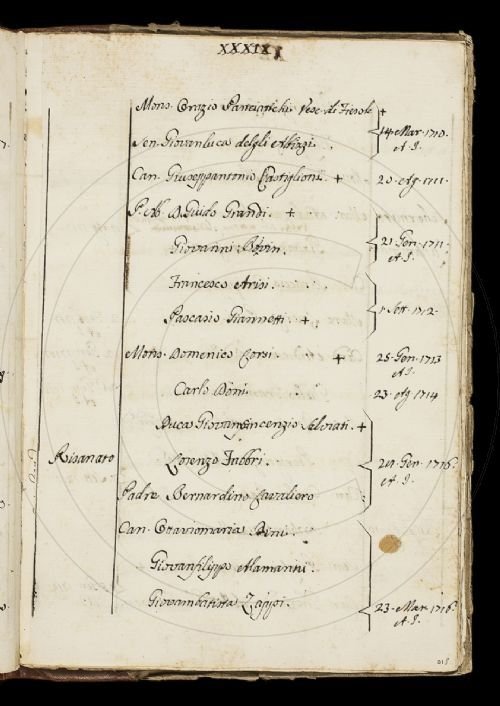 XXXIX
Mons. Orazio Panciatichi Vesc. di Fiesole +
14 Mar. 1710.
Sen. Giovanluca degli Albizzi.
A I.
Can. Giuseppantonio Castiglioni. +
20. Ag. 1711.
P. Ab. D. Guido Grandi. +
21. Gen. 1711.
Giovanni
A I.
Francesco Arisi.
Pascasio Giannetti. +
1. Sett. 1712.
Mons. Domenico Corsi. +
25. Gen. 1713
A I.
Carlo Doni.
23. Ag. 1714
Duca Giovanvincenzio Salviati. +
Risanato
Lorenzo Fabbri.
24. Gen. 1716.
A I.
Padre Bernardino Cavaliero
Can. Ottaviomaria Bini.
Giovanfilippo Alamanni.
Giovambatista Zappi.
23. Mar. 1716.
A I.